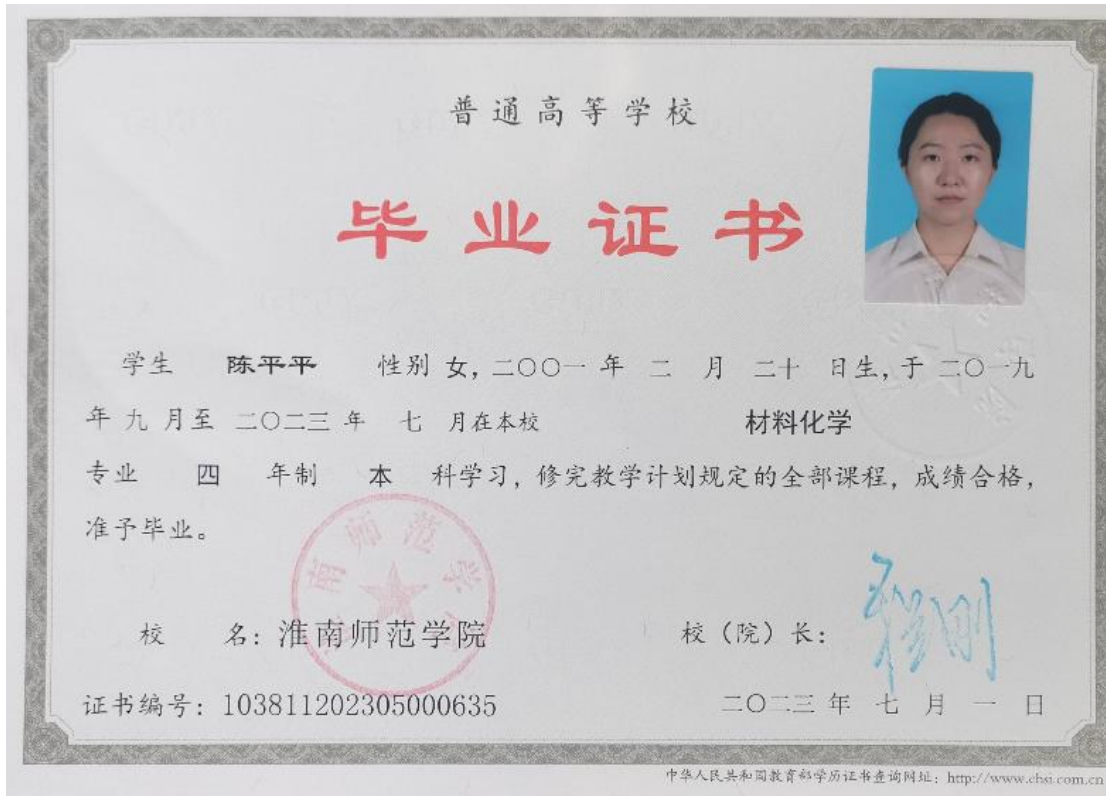 普通高等学校
毕业证书
学生 陈平平 性别 女，二〇〇一 年 二 月 二十 日生，于 二〇一九
年 九 月至 二〇二三 年 七 月在本校 材料化学
专业 四 年制 本 科学习，修完教学计划规定的全部课程，成绩合格，
准予毕业。
南师范学
校 名：淮南师范学院 校（院）长：
证书编号：103811202305000635 二〇二三 年 七 月 一 日
中华人民共和国教育部学历证书查询网址：http://www.chsi.com.cn